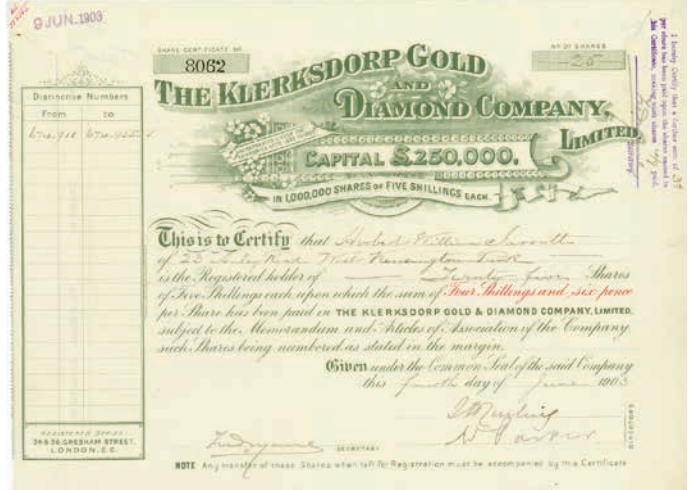 9 JUN. 1903
SHARE CERTIFICATE No
8062
No OF SHARES
25
THE KLERKSDORP GOLD
AND
DIAMOND COMPANY,
LIMITED.
CAPITAL £250,000.
IN 1,000,000 SHARES OF FIVE SHILLINGS EACH.
Distinctive Numbers
From to
I hereby Certify that a further sum of 3d
per share has been paid upon the shares named in
this Certificate, making such shares paid.
Secretary.
This is to Certify that Herbert William
of 23 Road West Kensington Park
is the Registered holder of Twenty five Shares
of Five Shillings each upon which the sum of Four Shillings and six pence
per Share has been paid in THE KLERKSDORP GOLD & DIAMOND COMPANY, LIMITED,
subject to the Memorandum and Articles of Association of the Company
such Shares being numbered as stated in the margin.
Given under the Common Seal of the said Company
this fourth day of June 1903
DIRECTORS
SECRETARY
REGISTERED OFFICE:
34 & 36, GRESHAM STREET,
LONDON. E.C.
NOTE Any transfer of these Shares when left for Registration must be accompanied by this Certificate